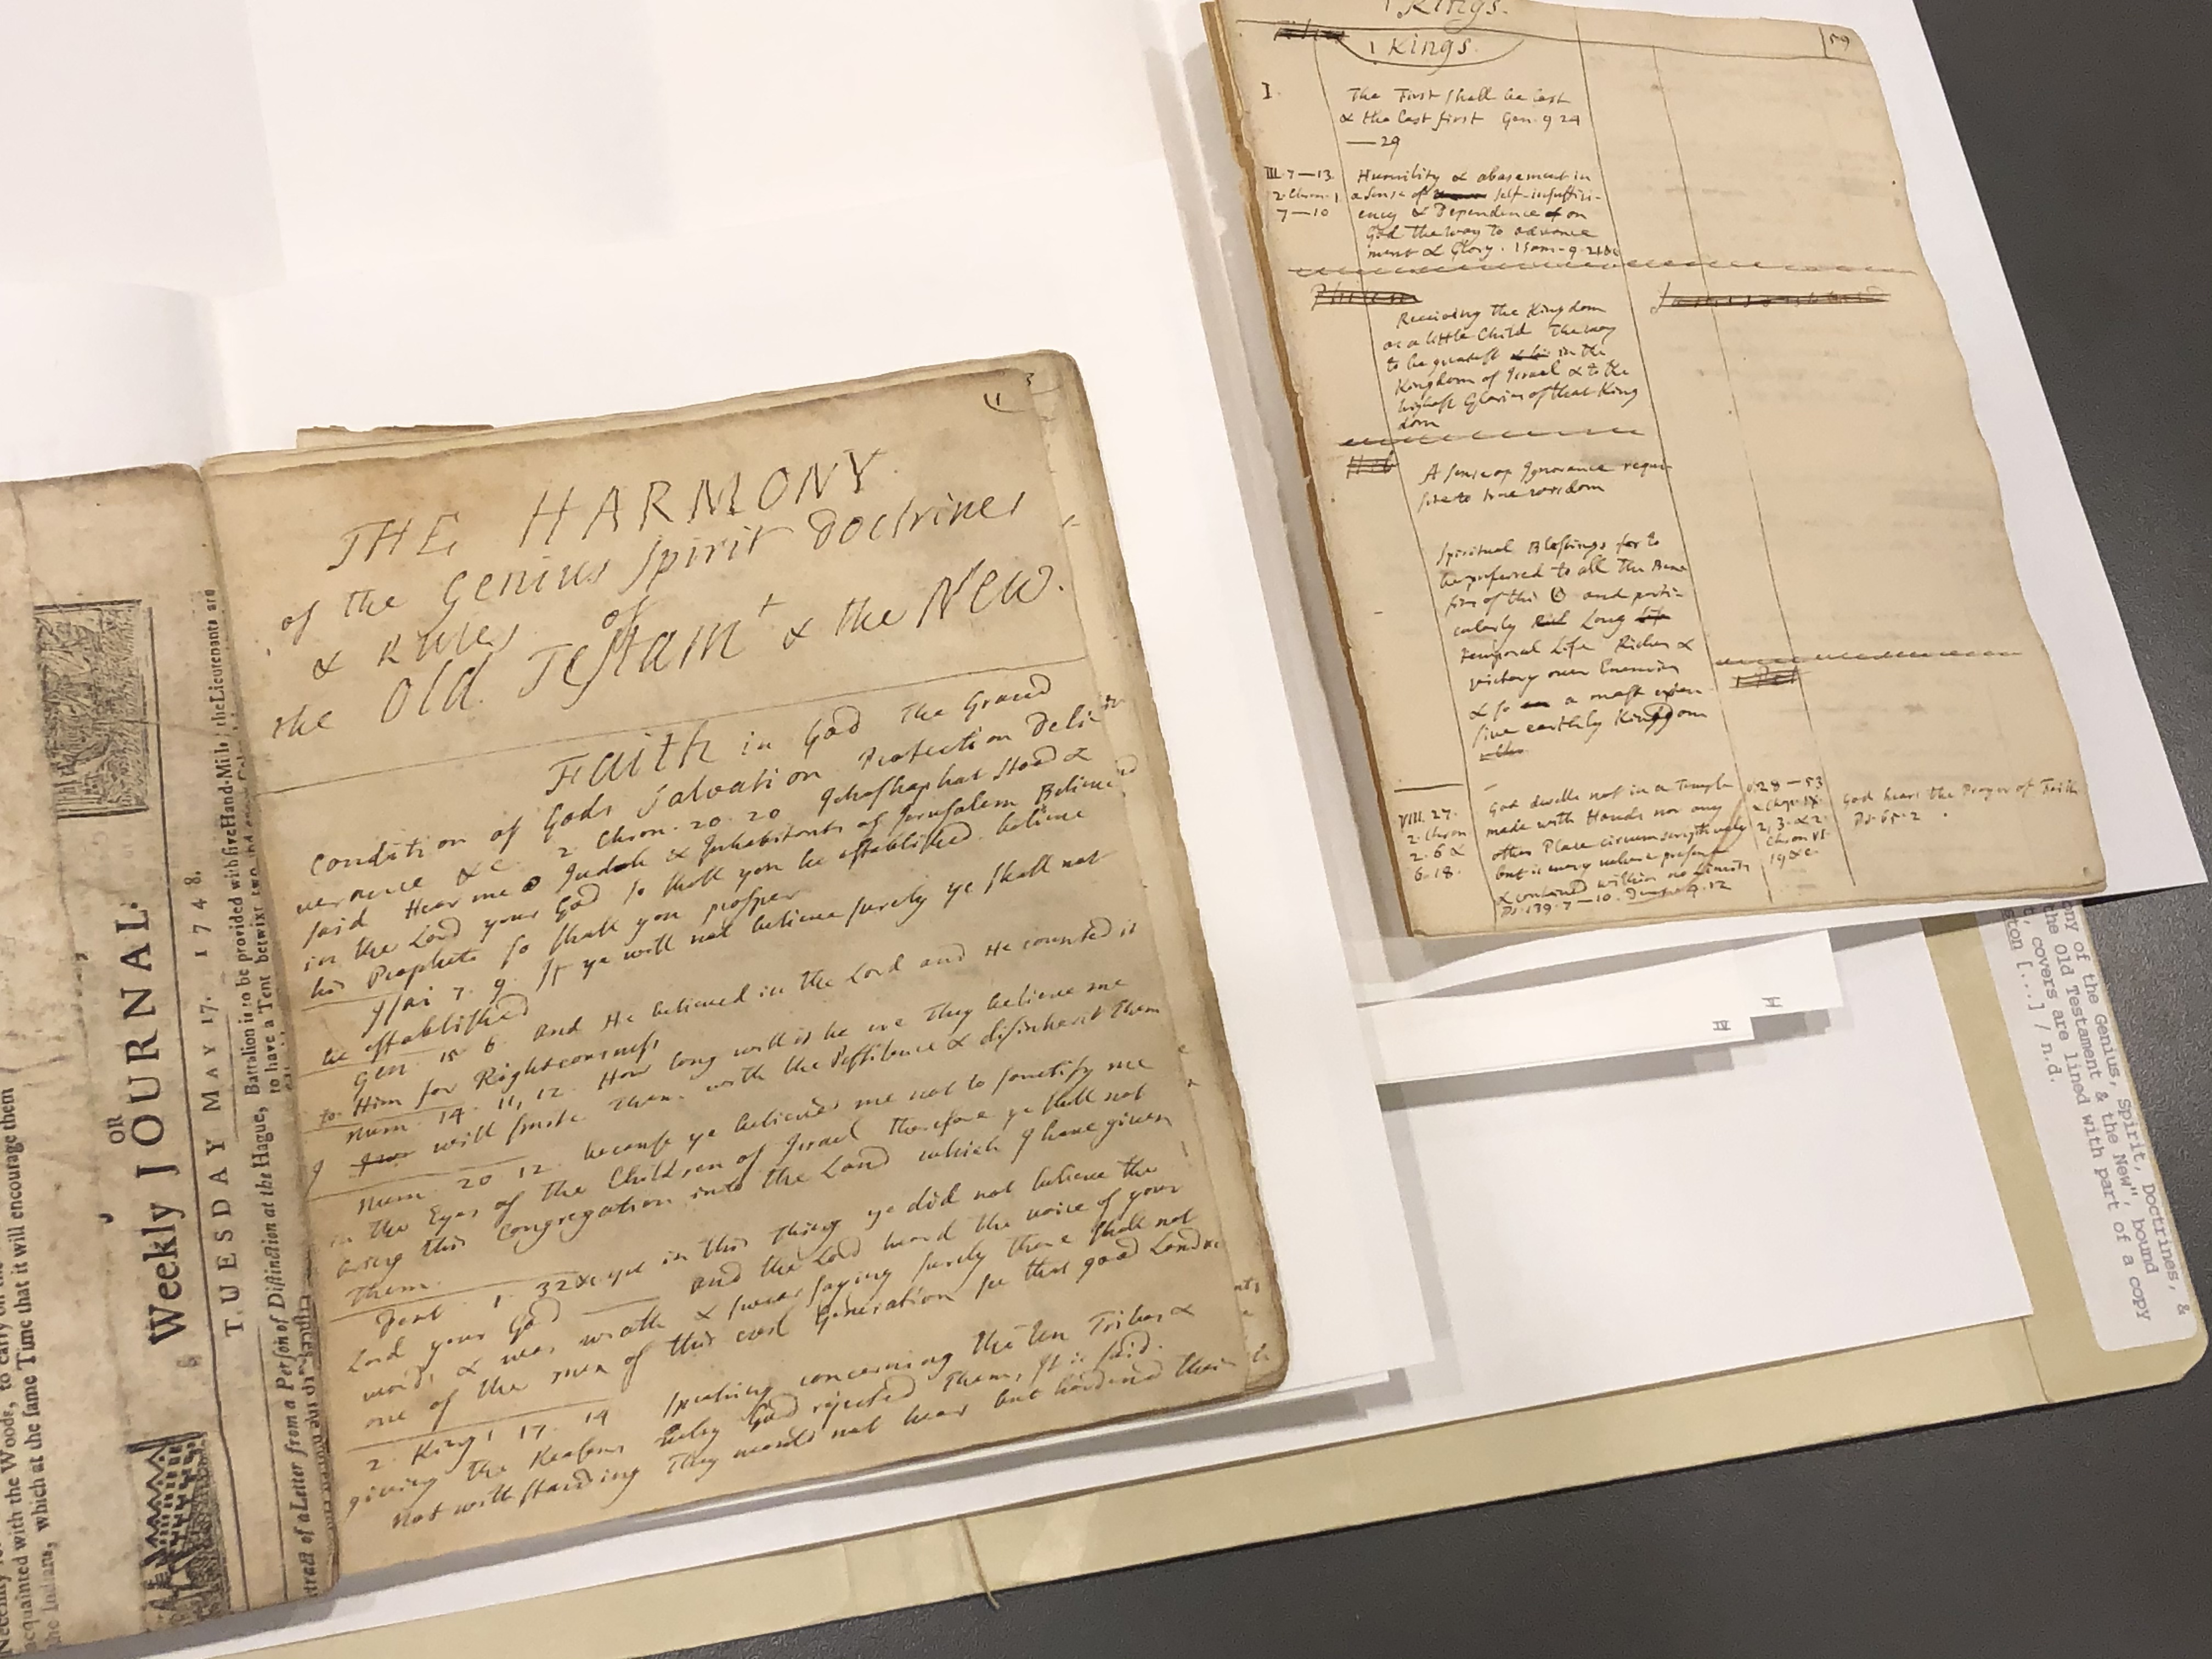 Necessity
acquainted with the Woods, to carry on the
the Indians, which at the same Time that it will encourage them
OR
Weekly JOURNAL.
TUESDAY MAY 17. 1748.
Battalion is to be provided with five Hand-Mills; the Lieutenants are
to have a Tent betwixt two
Extract of a Letter from a Person of Distinction at the Hague,
THE HARMONY
of the Genius Spirit Doctrines
& Rules of
the Old Testamt & the New.
Faith in God The Grand
Condition of Gods Salvation Protection Deli
verance &c 2 Chron. 20. 20 Jehoshaphat stood &
said Hear me O Judah & Inhabitants of Jerusalem Believe
in the Lord your God so shall you be established. believe
his Prophets so shall you prosper
Isai 7. 9. If ye will not believe surely ye shall not
be established
Gen 15 6 and He believed in the Lord and He counted it
to Him for Righteousness
Num. 14. 11, 12. How long will it be ere they believe me
I will smite them with the Pestilence & disinherit them
Num. 20 12. because ye believed me not to sanctify me
in the Eyes of the Children of Israel therefore ye shall not
bring this Congregation into the Land which I have given
Them.
Deut. 1. 32 &c yet in this thing ye did not believe the
Lord your God and the Lord heard the voice of your
words & was wroth & sware saying surely there shall not
one of the men of this evil Generation see that good Land &c
2. Kings 17. 14 speaking concerning the ten Tribes &
giving the Reasons why God rejected Them, It is said.
Notwithstanding They would not hear but hardened their
1 Kings.
1 Kings. 59
I The First shall be last
& the last first Gen. 9 24
— 29
III. 7 — 13. Humility & abasement in
2. Chron. 1. a sense of self-insuffici-
7 — 10 ency & Dependence on
God the way to advance
ment & Glory. 1 Sam. 9. 21 &c
Receiving the Kingdom
as a little Child The way
to be greatest in the
Kingdom of Israel & to the
highest Glories of that King
dom
A sense of Ignorance requi-
site to true wisdom
Spiritual Blessings to
be preferred to all the Bene
fits of this and parti-
cularly Long
temporal Life Riches &
victory over Enemies
& so a most exten-
sive earthly Kingdom
VIII. 27. God dwells not in a Temple v. 28 — 53
2. Chron. made with Hands nor any God hears the Prayer of Faith
2. 6 & other Place circumscriptively 2, 3. & 2. Ps. 65. 2.
6. 18. but is every where present Chron VI.
& contained within no Limits 19 &c.
Ps. 139. 7 — 10.
IV
H
of the Genius, Spirit, Doctrines, &
the Old Testament & the New", bound
covers are lined with part of a copy
[...] / n.d.